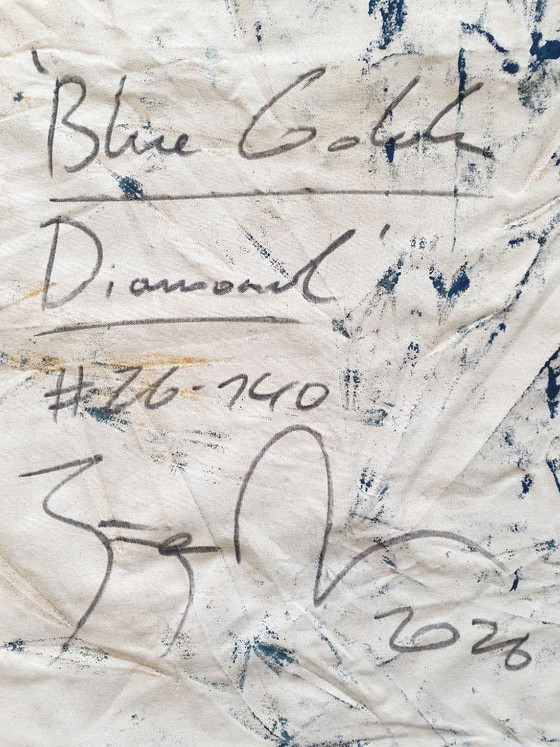 'Blue Gold
Diamond'
#26-140
2026